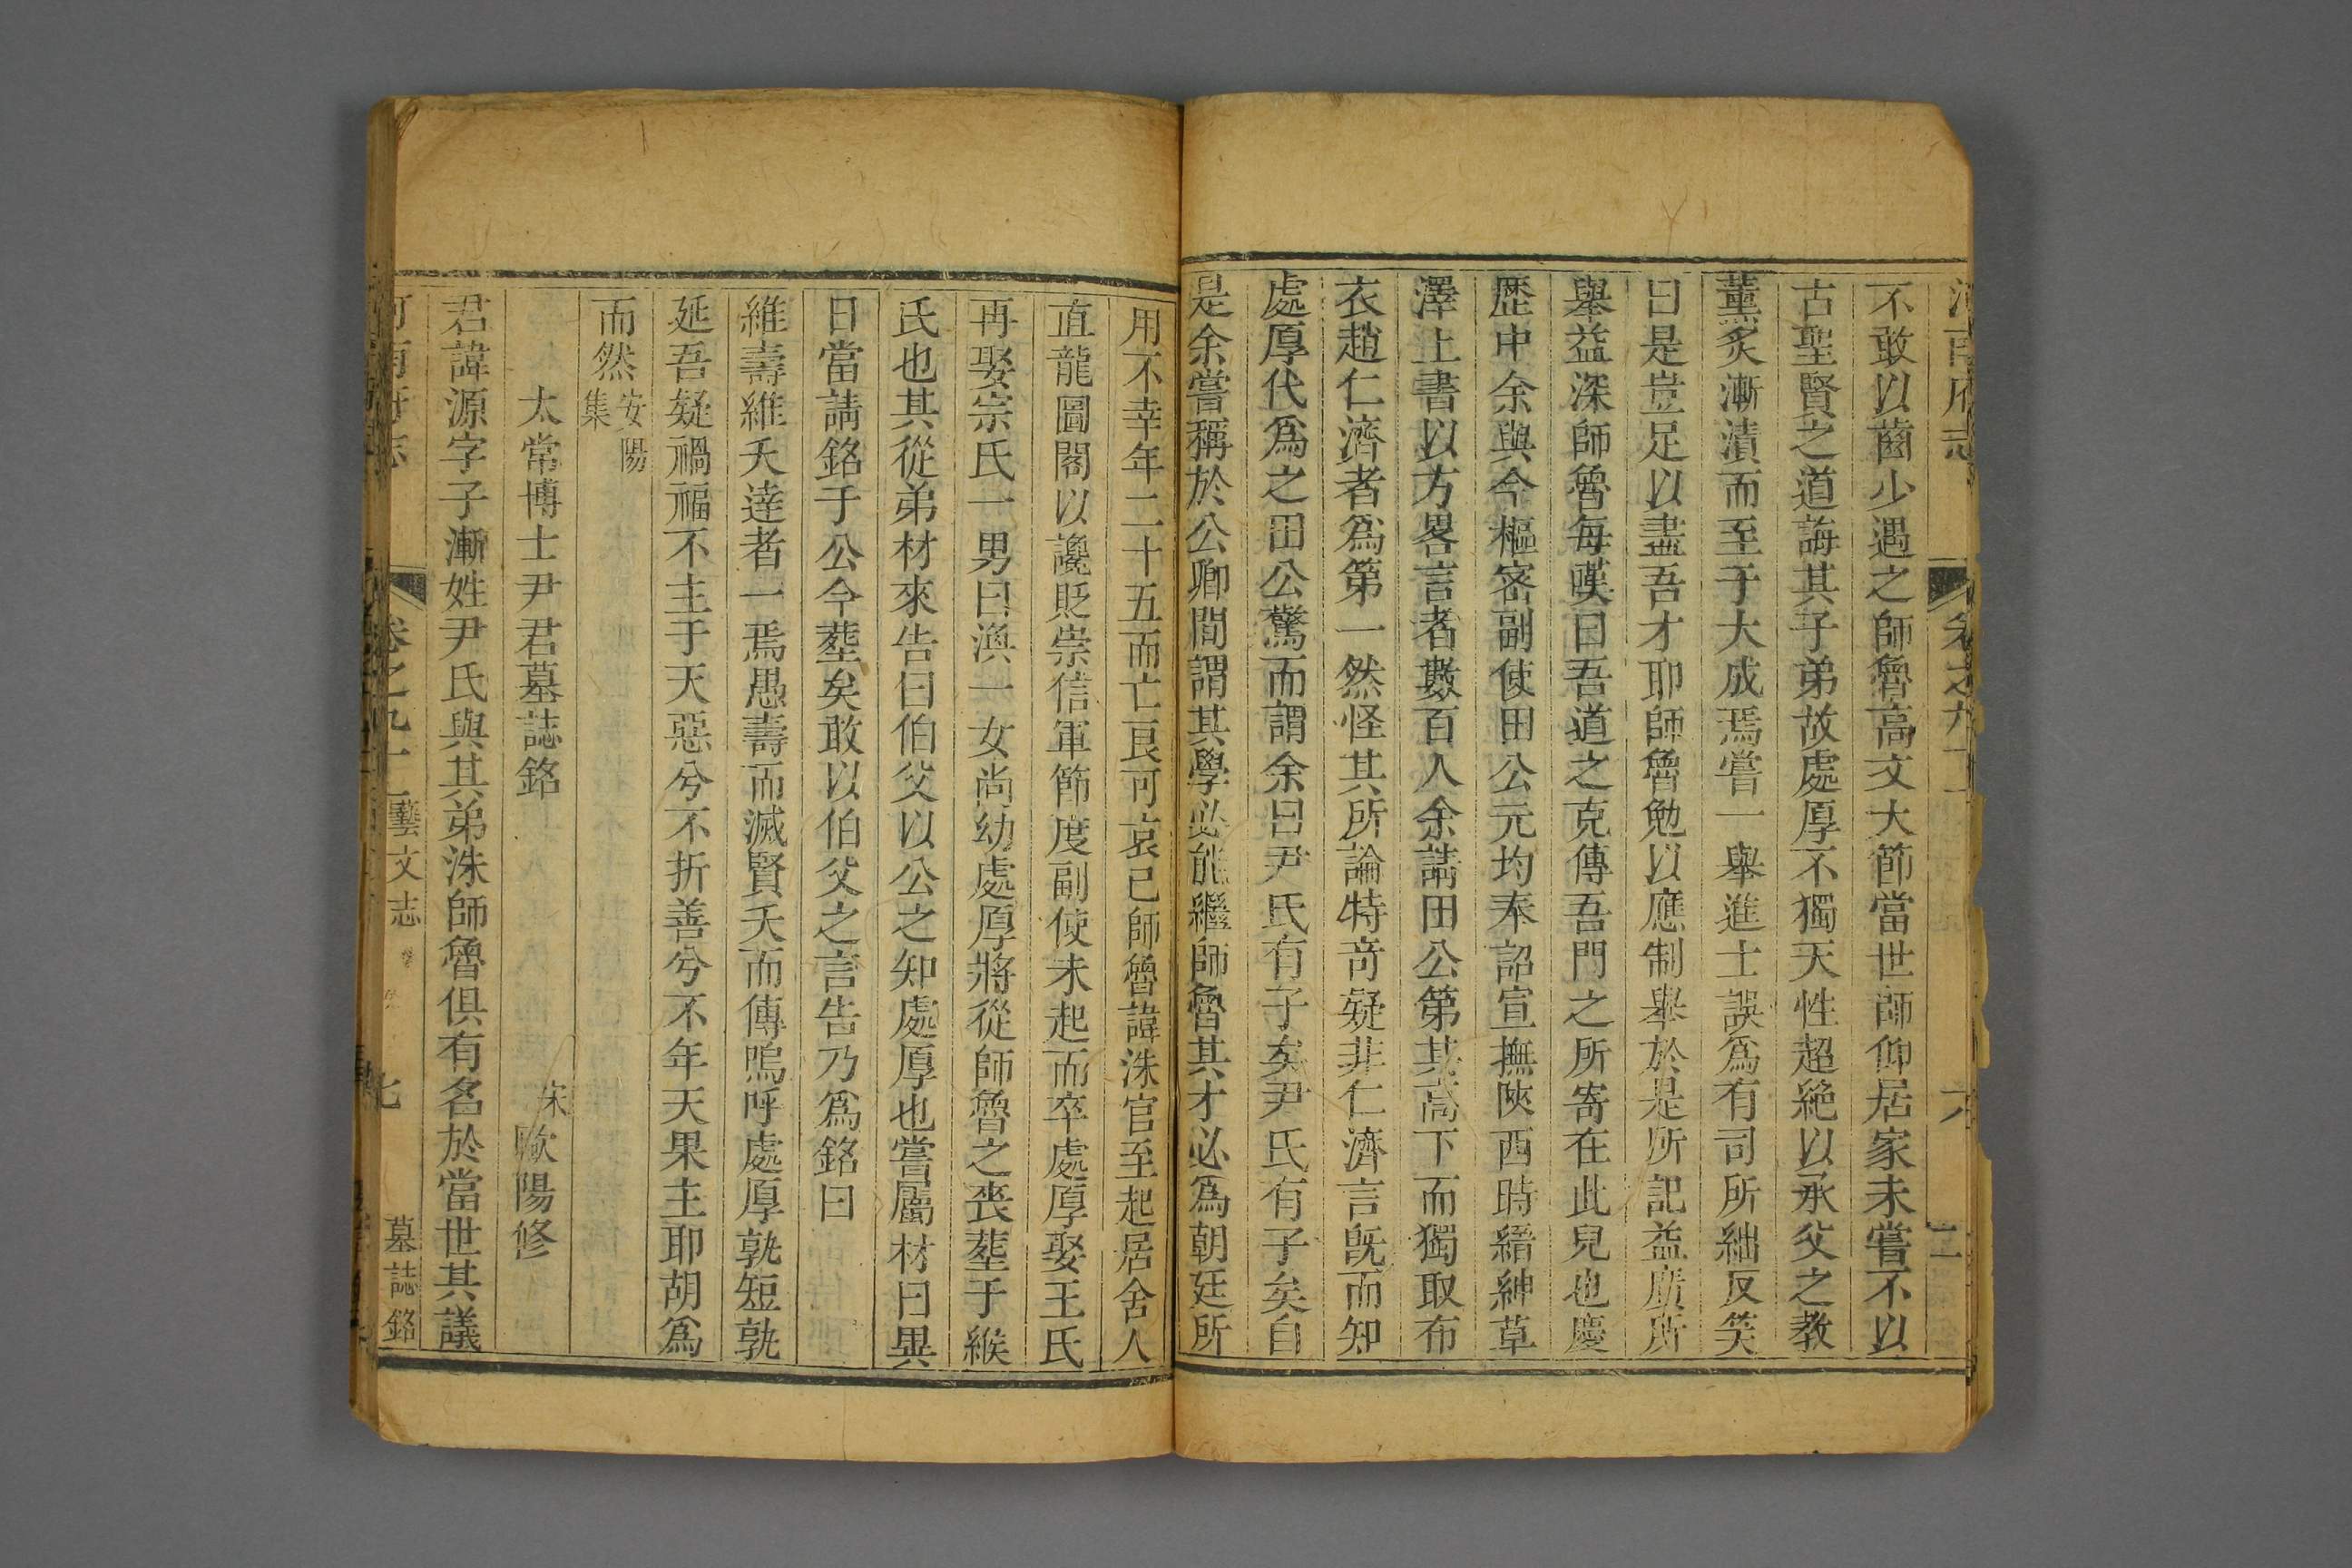 河南府志 卷之九十 六
不敢以齒少遇之師魯高文大節當世師仰居家未嘗不以
古聖賢之道誨其子弟故處厚不獨天性超絶以承父之教
薰炙漸漬而至于大成焉嘗一舉進士誤爲有司所絀反笑
曰是豈足以盡吾才耶師魯勉以應制舉於是所記益廣所
舉益深師魯每嘆曰吾道之克傳吾門之所寄在此兒也慶
歷中余與今樞密副使田公元均奉詔宣撫陝西時縉紳草
澤上書以方畧言者數百人余請田公第其高下而獨取布
衣趙仁濟者爲第一然怪其所論特奇疑非仁濟言旣而知
處厚代爲之田公驚而謂余曰尹氏有子矣尹氏有子矣自
是余嘗稱於公卿間謂其學必能繼師魯其才必爲朝廷所
用不幸年二十五而亡良可哀已師魯諱洙官至起居舍人
直龍圖閣以讒貶崇信軍節度副使未起而卒處厚娶王氏
再娶宗氏一男曰渙一女尚幼處厚將從師魯之喪塟于緱
氏也其從弟材來告曰伯父以公之知處厚也嘗屬材曰異
日當請銘于公今塟矣敢以伯父之言告乃爲銘曰
維壽維夭達者一焉愚壽而滅賢夭而傳嗚呼處厚孰短孰
延吾疑禍福不主于天惡兮不折善兮不年天果主耶胡爲
而然安陽集
太常博士尹君墓誌銘 宋歐陽修
君諱源字子漸姓尹氏與其弟洙師魯俱有名於當世其議
河南府志 卷之九十 藝文志 七 墓誌銘